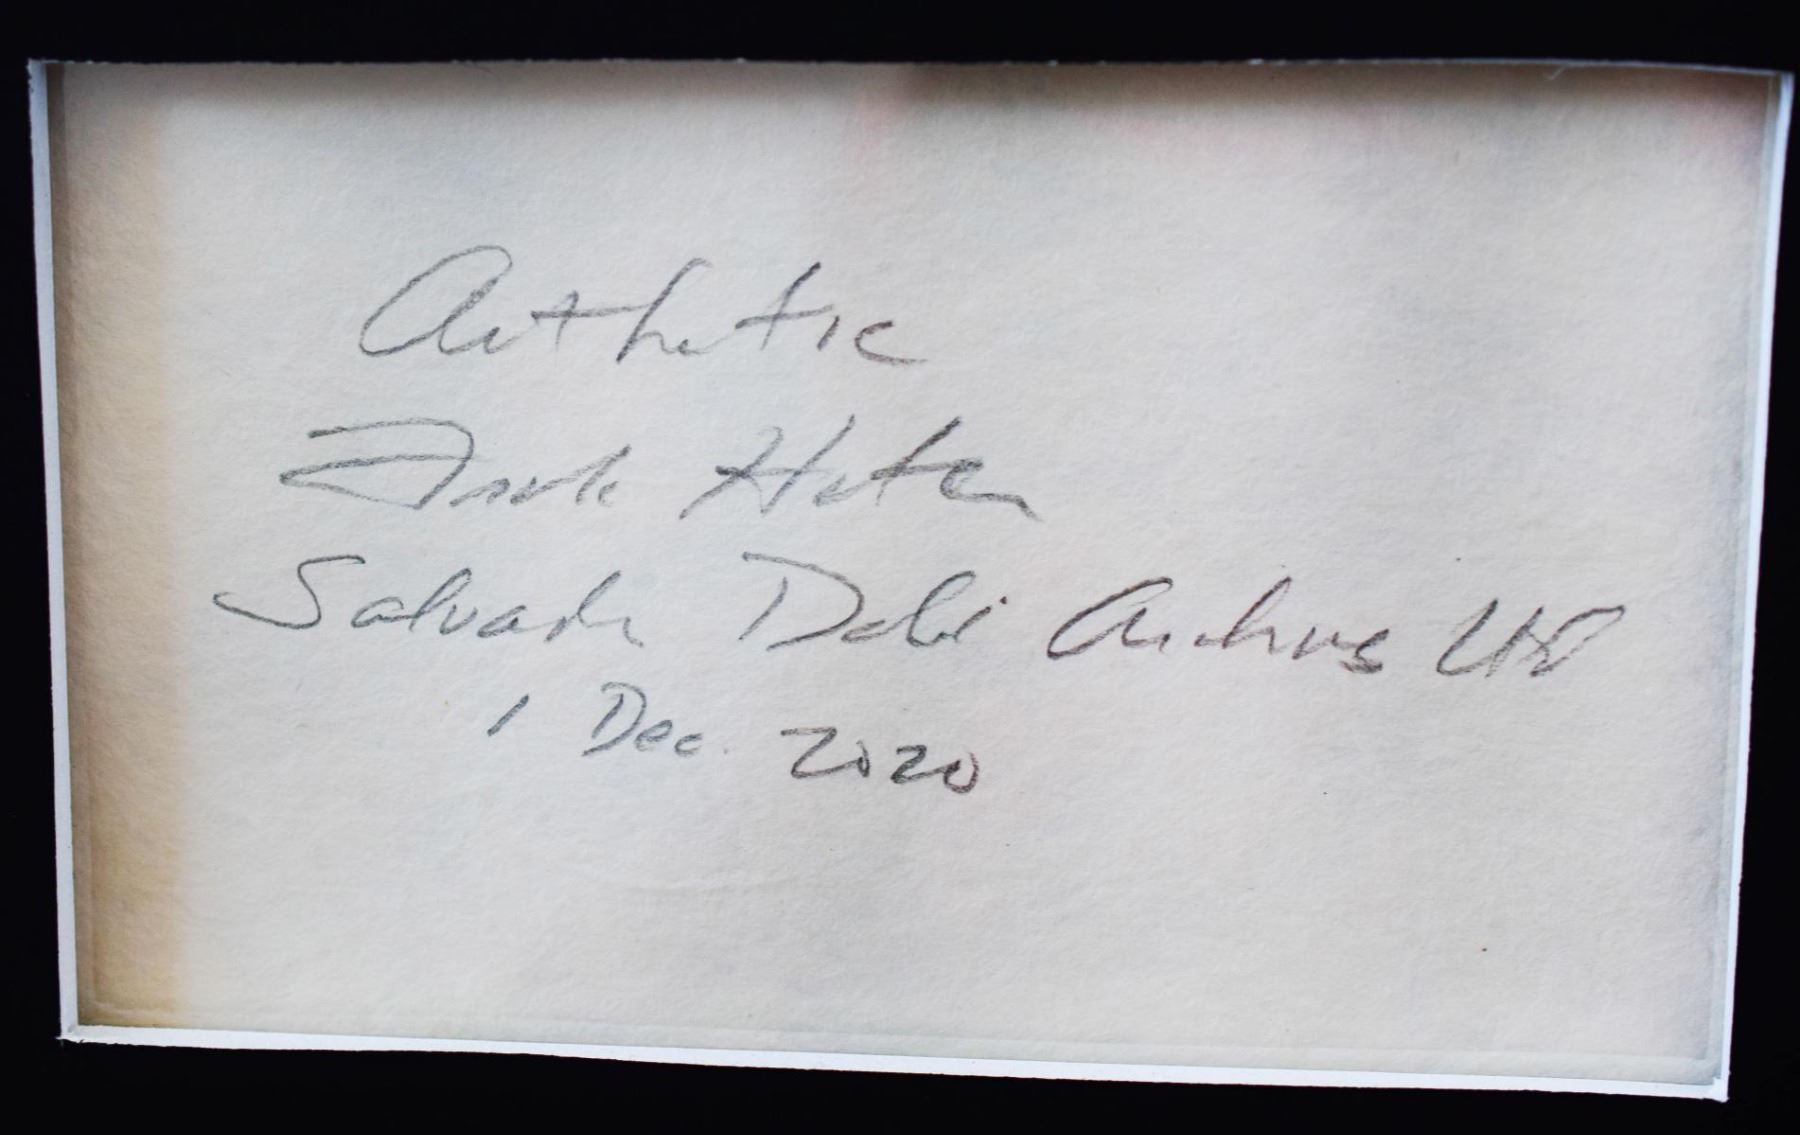 Authetic
Frank Hunter
Salvador Dali Archives Ltd
1 Dec. 2020